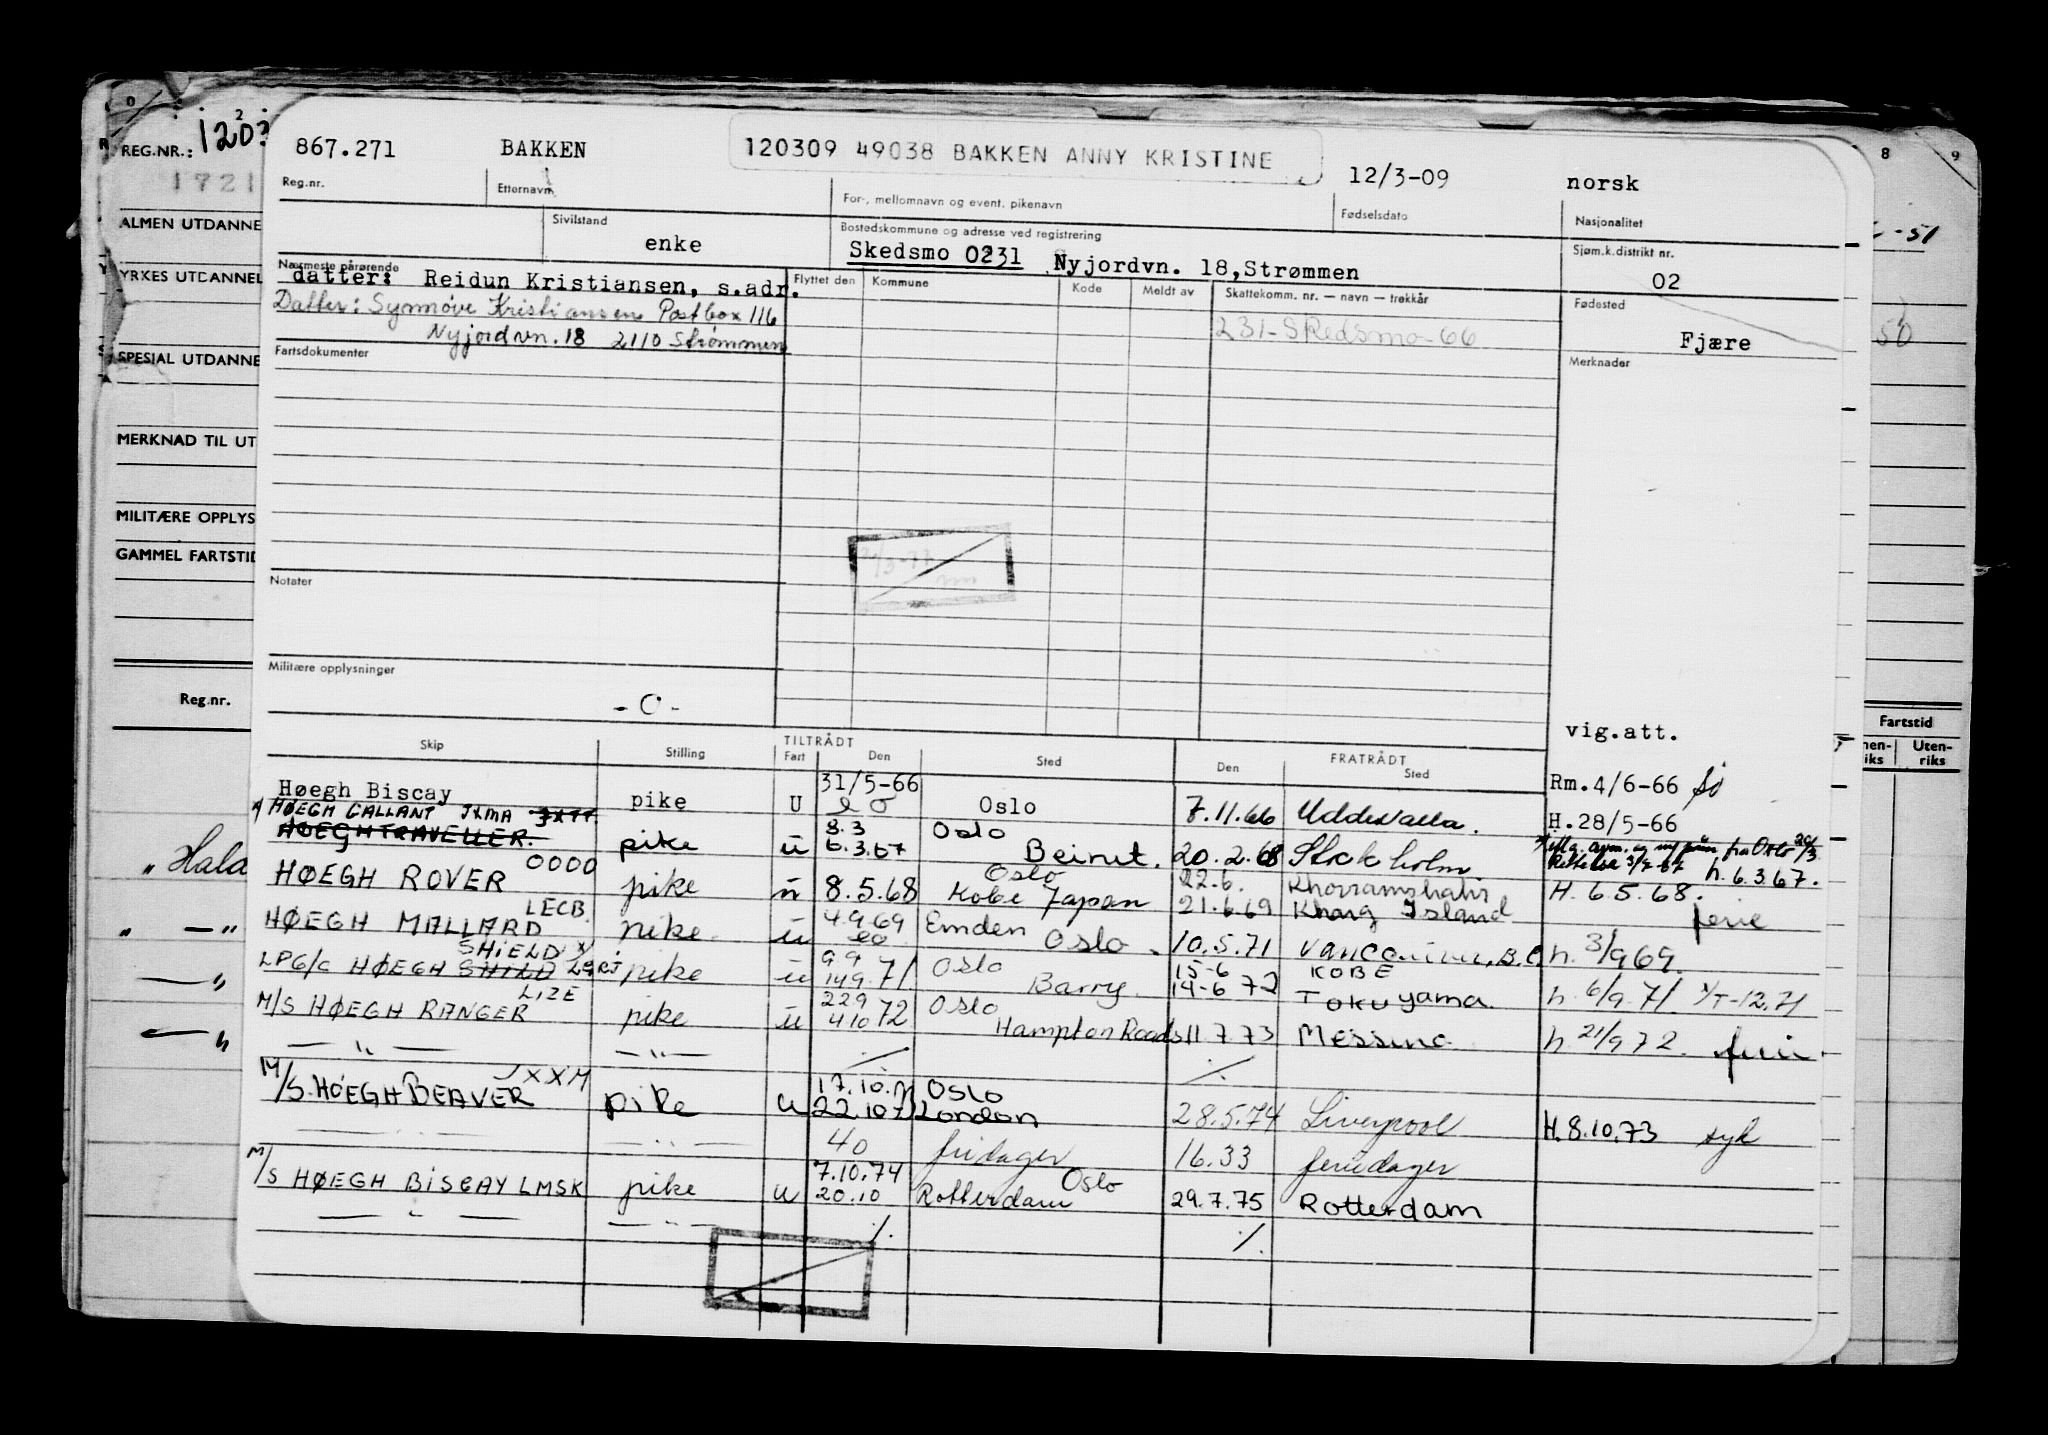 867.271 BAKKEN 120309 49038 BAKKEN ANNY KRISTINE 12/3-09 norsk
Reg.nr. Etternavn For-, mellomnavn og event. pikenavn Fødselsdato Nasjonalitet
Sivilstand enke Bostedskommune og adresse ved registrering Sjøm.k.distrikt nr.
Skedsmo 0231 Nyjordvn. 18, Strømmen 02
Nærmeste pårørende
datter: Reidun Kristiansen, s.adr.
Datter: Synnøve Kristiansen Postbox 116
Nyjordvn. 18 2110 Strømmen
Flyttet den Kommune Kode Meldt av Skattekomm. nr. — navn — trekkår Fødested
231-Skedsmo-66 Fjære
Fartsdokumenter Merknader
Notater
Militære opplysninger
- C -
vig.att.
Skip Stilling TILTRÅDT Fart Den Sted FRATRÅDT Den Sted
Høegh Biscay pike U 31/5-66 Oslo 7.11.66 Uddevalla. Rm.4/6-66
H.28/5-66
HØEGH GALLANT JXMA
HØEGH TRAVELLER. pike u 8.3 Oslo
6.3.67 Beirut. 20.2.68 Stockholm. h. 6.3.67.
HØEGH ROVER OOOO pike u 8.5.68 Oslo Kobe Japan 22.6. Khorramshahr
21.6.69 Kharg Island H. 6.5.68. ferie
HØEGH MALLARD LECB. pike u 4.9.69 Emden Oslo 10.5.71 Vancouver, B.C. h. 3/9 69.
LPG/C HØEGH SHILD SHIELD pike u 9 9 Oslo
14 9.71. Barry 15-6 KOBE
14-6 72 Tokuyama h. 6/9.71. -12.71
M/S HØEGH RANGER LIZE pike u 22 9 Oslo
4 10 72 Hampton Roads 11.7.73 Messina h. 21/9 72. ferie.
— " — — " — ./. ./.
M/S. HØEGH BEAVER JXXM pike u 17.10. Oslo
22.10 London 28.5.74 Liverpool H.8.10.73 syk
— " — — " — 40 fridager 16.33 feriedager
M/S HØEGH BISCAY LMSK pike u 7.10.74 Oslo
20.10 Rotterdam 29.7.75 Rotterdam
— " — — " — ./. ./.
0
REG.NR.: 1203
1721
ALMEN UTDANNE
YRKES UTDANNEL
SPESIAL UTDANNE
MERKNAD TIL UT
MILITÆRE OPPLYS
GAMMEL FARTSTID
Reg.nr.
"Hala
8 9
-51
50
Fartstid
nen-riks Uten-riks